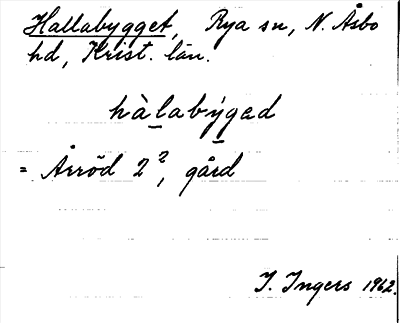 Hallabygget, Rya sn, N. Åsbo
hd, Krist. län.
hàlabýged
= Årröd 2?, gård
I. Ingers 1962.